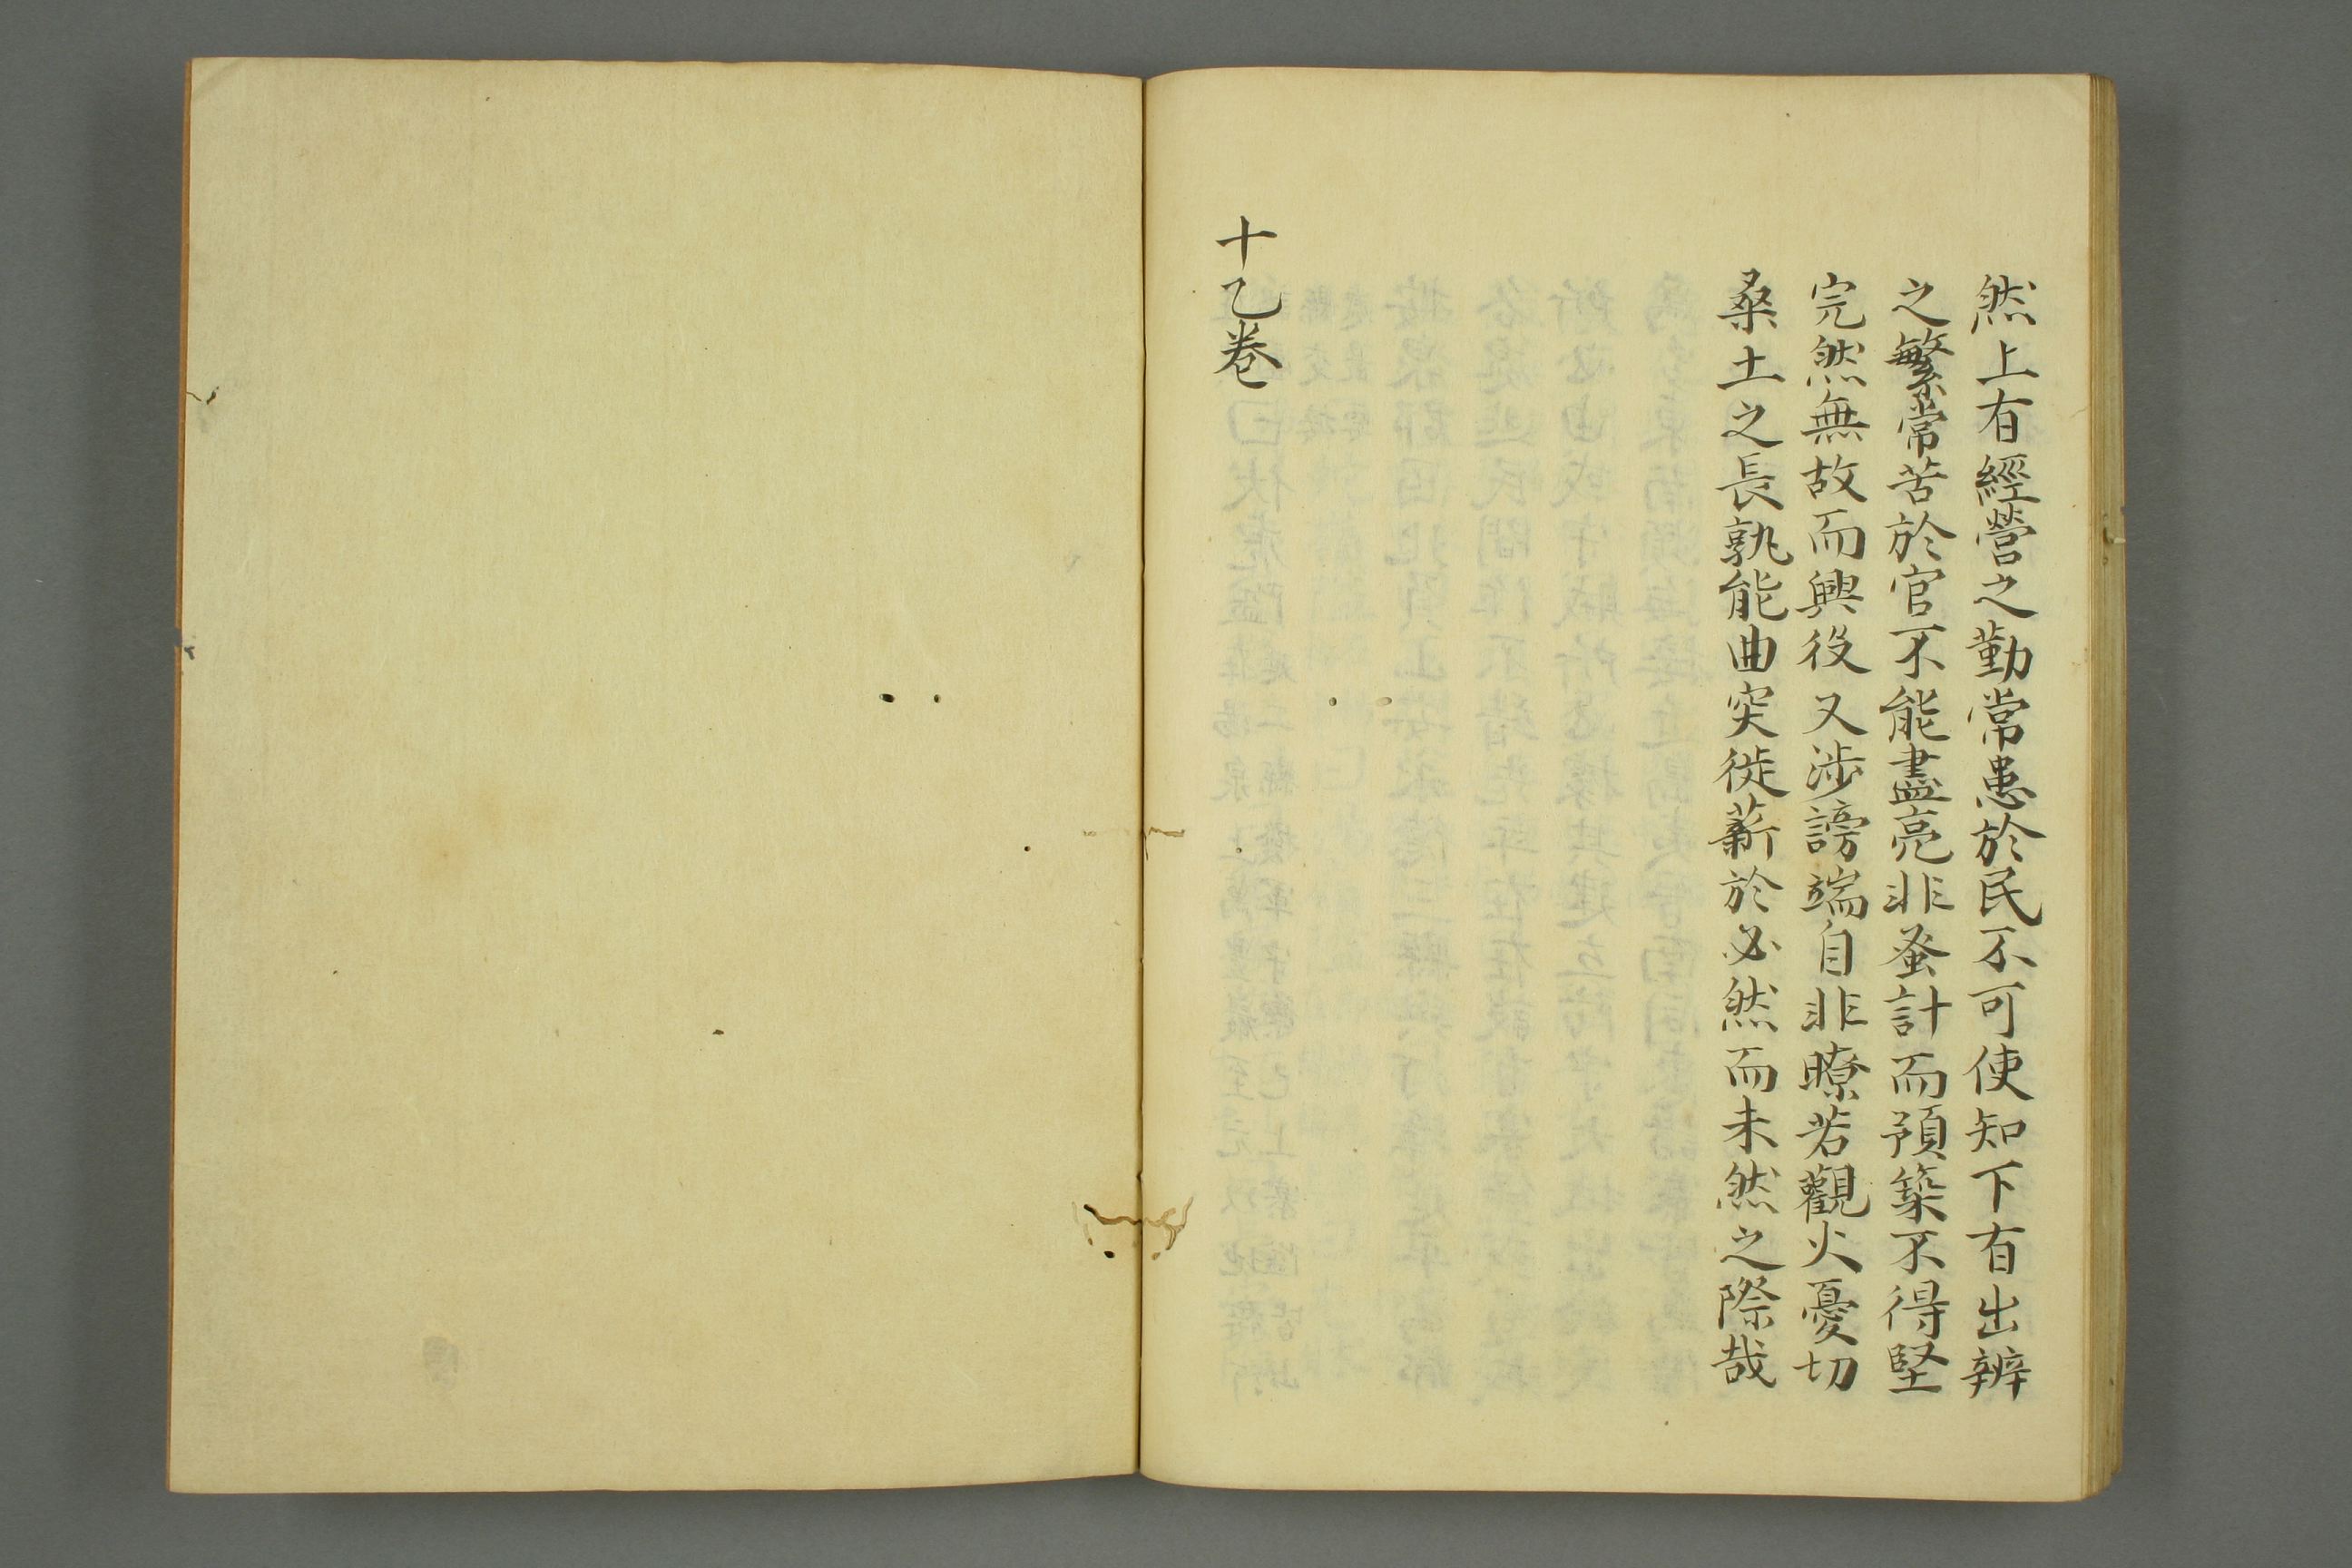 然上有經營之勤常患於民不可使知下有出辨
之繁常苦於官不能盡亮非蚤計而預築不得堅
完然無故而興役又涉謗端自非瞭若觀火憂切
桑土之長孰能曲突徙薪於必然而未然之際哉
十乙卷